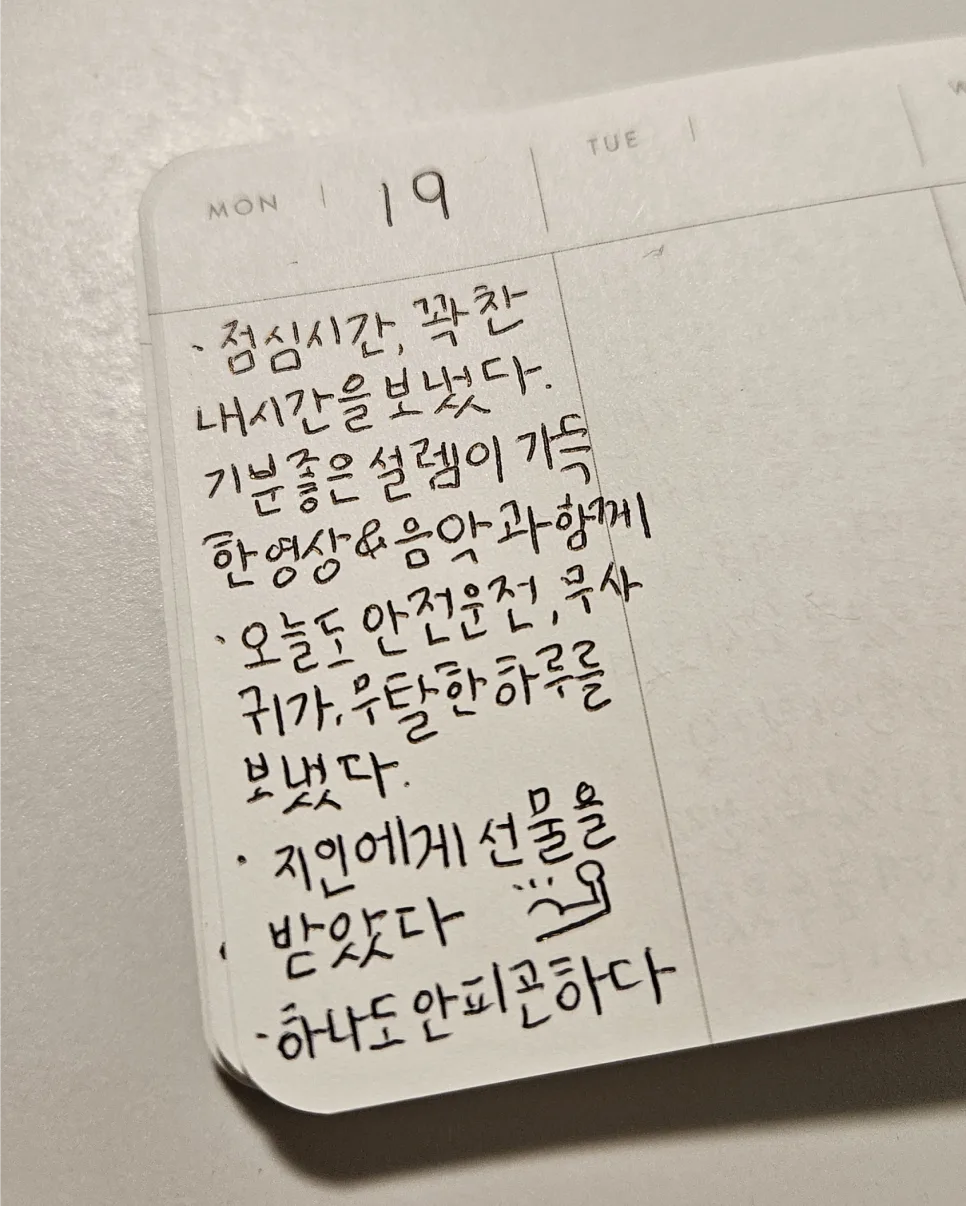 MON | 19
TUE |
· 점심시간, 꽉찬
내시간을 보냈다.
기분좋은 설렘이 가득
한 영상&음악과 함께
· 오늘도 안전운전, 무사
귀가, 무탈한 하루를
보냈다.
· 지인에게 선물을
받았다
· 하나도 안피곤하다